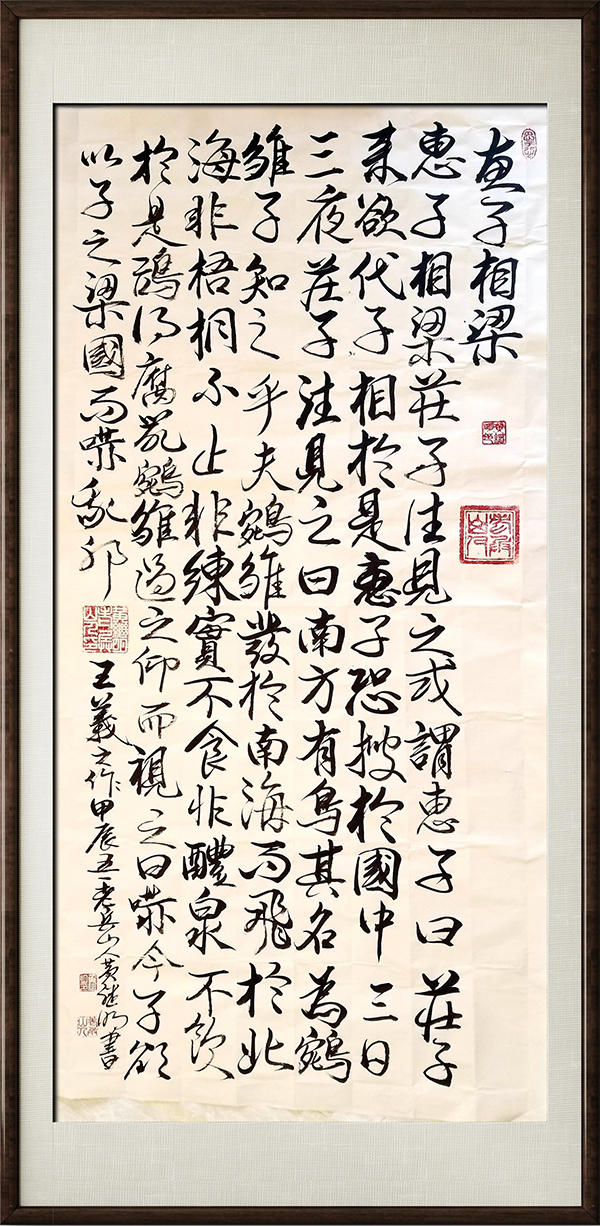 惠子相梁
惠子相梁莊子往見之或謂惠子曰莊子
来欲代子相於是惠子恐搜於國中三日
三夜莊子往見之曰南方有鳥其名為鵷
雛子知之乎夫鵷雛發於南海而飛於北
海非梧桐不止非練實不食非醴泉不飲
於是鴟得腐鼠鵷雛過之仰而視之曰嚇今子欲
以子之梁國而嚇我邪
王羲之作甲辰五一老岳山人黄書